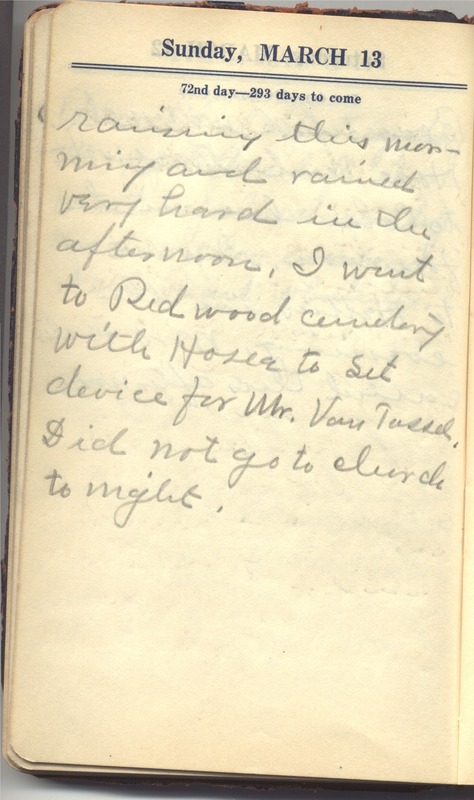 Sunday, MARCH 13
72nd day—293 days to come
raining this mor-
ning and rained
very hard in the
afternoon, I went
to Redwood cemetery
with Hosea to set
device for Mr. Van Tassel.
Did not go to church
to night.